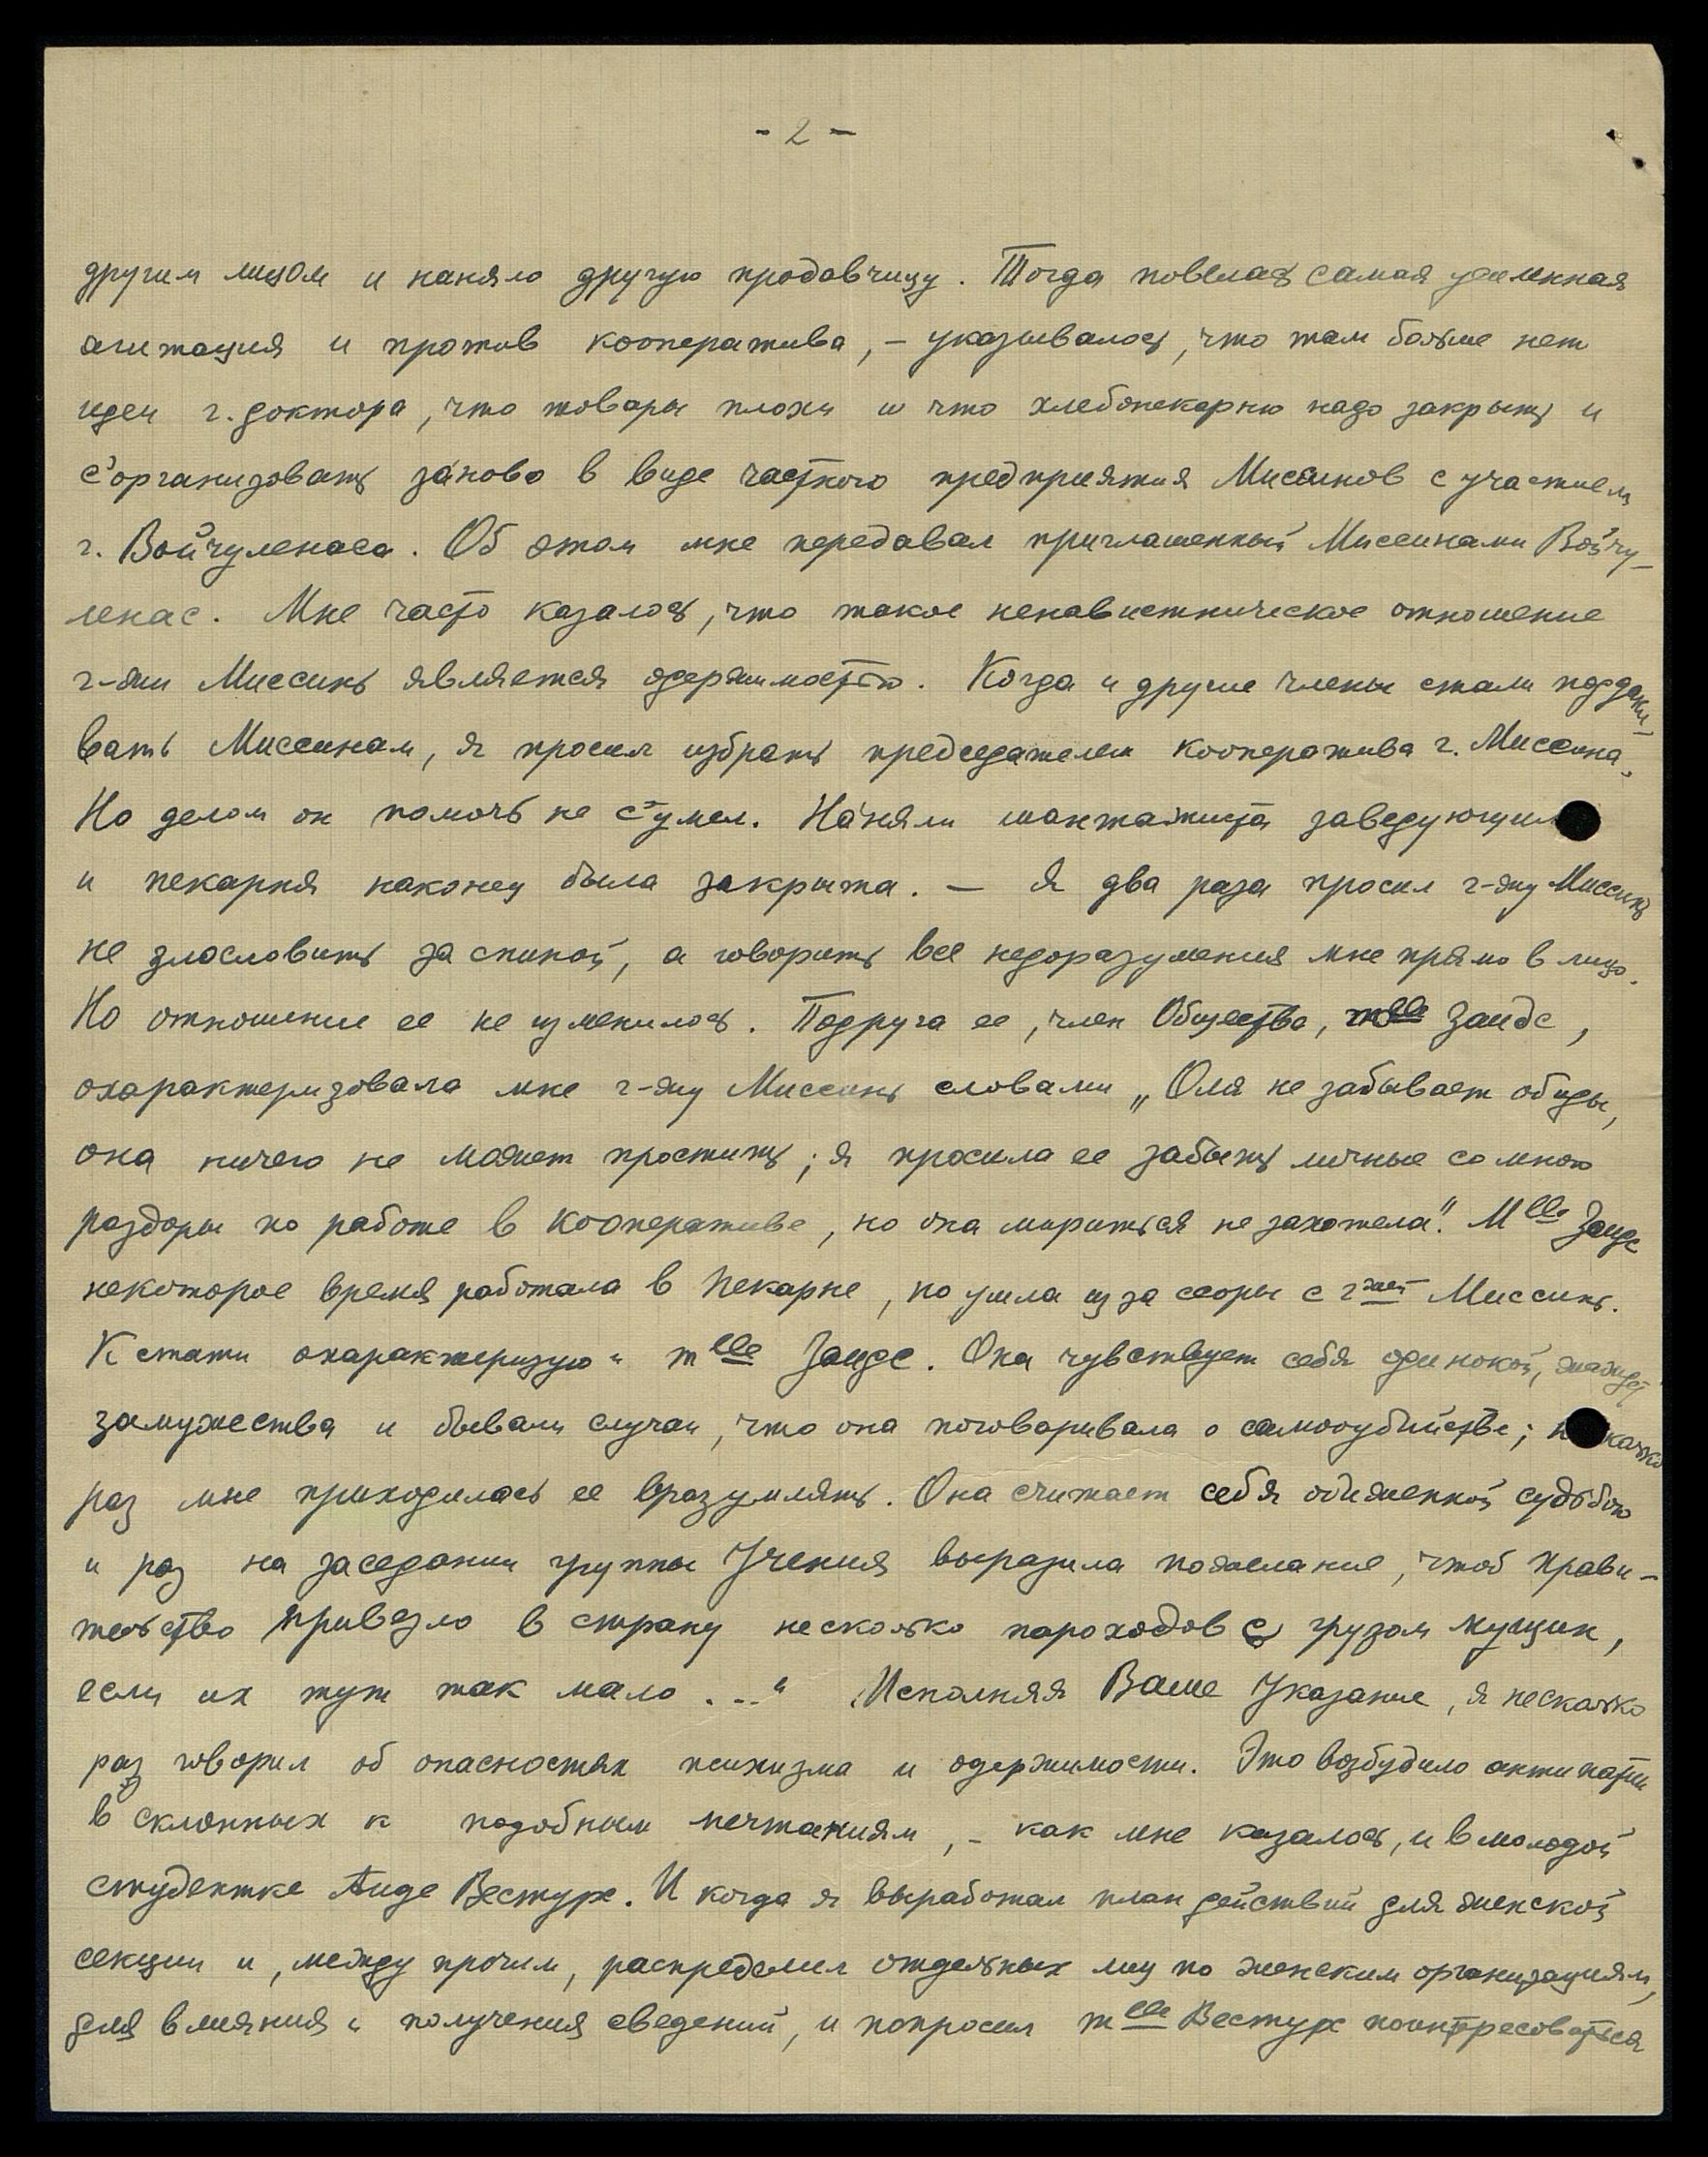 - 2 -
другим лицом и наняло другую продавчицу. Тогда повелась самая усиленная
агитация и против кооператива, – указывалось, что там больше нет
идеи г. доктора, что товары плохи и что хлебопекарню надо закрыть и
с'организовать за́ново в виде частного предприятия Миссинов с участием
г. Войчуленаса. Об этом мне передавал приглашенный Миссинами Войчу-
ленас. Мне часто казалось, что такое ненавистническое отношение
г-жи Миссинь является одержимостью. Когда и другие члены стали поддаки-
вать Миссинам, я просил избрать председателем кооператива г. Миссина.
Но делом он помочь не с'умел. На́няли шантажиста заведующим
и пекарня наконец была закрыта. – Я два раза просил г-жу Миссинь
не злословить за спиной, а говорить все недоразумения мне прямо в лицо.
Но отношение ее не изменилось. Подруга ее, член Общества, mlle Заидс,
охарактеризовала мне г-жу Миссинь словами „Оля не забывает обиды,
она ничего не может простить; я просила ее забыть личные со мною
раздоры по работе в кооперативе, но она мириться не захотела". Mlle Заидс
некоторое время работала в пекарне, но ушла из за ссоры с гжей Миссинь.
К стати охарактеризую и mlle Заидс. Она чувствует себя одинокой, жаждет
замужества и бывали случаи, что она поговаривала о самоубийстве; несколько
раз мне приходилось ее вразумлять. Она считает себя обиженной судьбою
и раз на заседании группы Учения выразила пожелание, чтоб прави-
тельство привезло в страну несколько пароходов с грузом мущин,
если их тут так мало..." Исполняя Ваше Указание, я несколько
раз говорил об опасностях психизма и одержимости. Это возбудило антипатии
в склонных к подобным мечтаниям, – как мне казалось, и в молодой
студентке Аиде Вестуре. И когда я выработал план действий для женской
секции и, между прочим, распределил отдельных лиц по женским организациям,
для влияния и получения сведений, и попросил mlle Вестуре поинтересоваться